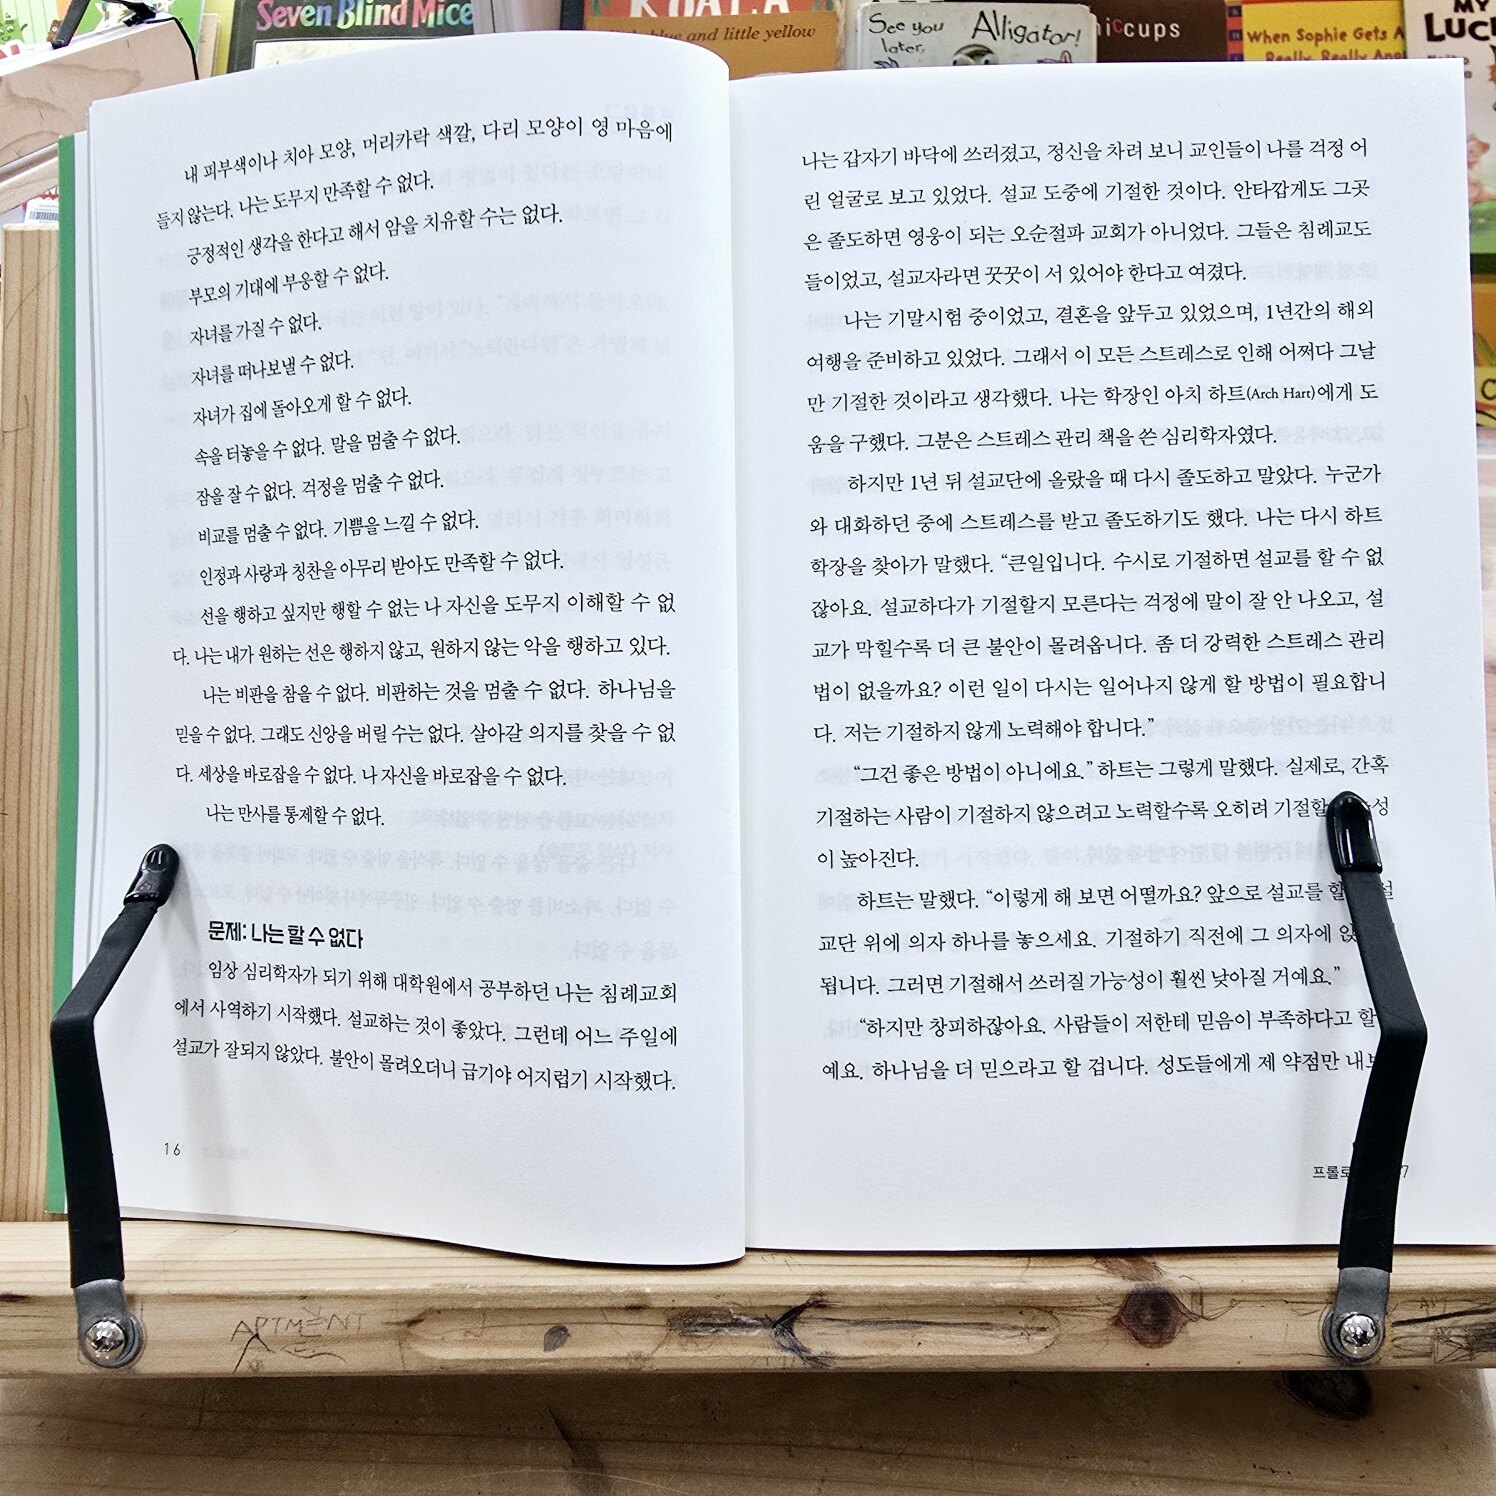 Seven Blind Mice
KOALA
little blue and little yellow
See you
later,
Alligator!
hiccups
When Sophie Gets A
Really, Really Ang
MY
LUC
내 피부색이나 치아 모양, 머리카락 색깔, 다리 모양이 영 마음에
들지 않는다. 나는 도무지 만족할 수 없다.
긍정적인 생각을 한다고 해서 암을 치유할 수는 없다.
부모의 기대에 부응할 수 없다.
자녀를 가질 수 없다.
자녀를 떠나보낼 수 없다.
자녀가 집에 돌아오게 할 수 없다.
속을 터놓을 수 없다. 말을 멈출 수 없다.
잠을 잘 수 없다. 걱정을 멈출 수 없다.
비교를 멈출 수 없다. 기쁨을 느낄 수 없다.
인정과 사랑과 칭찬을 아무리 받아도 만족할 수 없다.
선을 행하고 싶지만 행할 수 없는 나 자신을 도무지 이해할 수 없
다. 나는 내가 원하는 선은 행하지 않고, 원하지 않는 악을 행하고 있다.
나는 비판을 참을 수 없다. 비판하는 것을 멈출 수 없다. 하나님을
믿을 수 없다. 그래도 신앙을 버릴 수는 없다. 살아갈 의지를 찾을 수 없
다. 세상을 바로잡을 수 없다. 나 자신을 바로잡을 수 없다.
나는 만사를 통제할 수 없다.
문제: 나는 할 수 없다
임상 심리학자가 되기 위해 대학원에서 공부하던 나는 침례교회
에서 사역하기 시작했다. 설교하는 것이 좋았다. 그런데 어느 주일에
설교가 잘되지 않았다. 불안이 몰려오더니 급기야 어지럽기 시작했다.
16
나는 갑자기 바닥에 쓰러졌고, 정신을 차려 보니 교인들이 나를 걱정 어
린 얼굴로 보고 있었다. 설교 도중에 기절한 것이다. 안타깝게도 그곳
은 졸도하면 영웅이 되는 오순절파 교회가 아니었다. 그들은 침례교도
들이었고, 설교자라면 꿋꿋이 서 있어야 한다고 여겼다.
나는 기말시험 중이었고, 결혼을 앞두고 있었으며, 1년간의 해외
여행을 준비하고 있었다. 그래서 이 모든 스트레스로 인해 어쩌다 그날
만 기절한 것이라고 생각했다. 나는 학장인 아치 하트(Arch Hart)에게 도
움을 구했다. 그분은 스트레스 관리 책을 쓴 심리학자였다.
하지만 1년 뒤 설교단에 올랐을 때 다시 졸도하고 말았다. 누군가
와 대화하던 중에 스트레스를 받고 졸도하기도 했다. 나는 다시 하트
학장을 찾아가 말했다. “큰일입니다. 수시로 기절하면 설교를 할 수 없
잖아요. 설교하다가 기절할지 모른다는 걱정에 말이 잘 안 나오고, 설
교가 막힐수록 더 큰 불안이 몰려옵니다. 좀 더 강력한 스트레스 관리
법이 없을까요? 이런 일이 다시는 일어나지 않게 할 방법이 필요합니
다. 저는 기절하지 않게 노력해야 합니다.”
“그건 좋은 방법이 아니에요.” 하트는 그렇게 말했다. 실제로, 간혹
기절하는 사람이 기절하지 않으려고 노력할수록 오히려 기절할 성
이 높아진다.
하트는 말했다. “이렇게 해 보면 어떨까요? 앞으로 설교를 할 설
교단 위에 의자 하나를 놓으세요. 기절하기 직전에 그 의자에
됩니다. 그러면 기절해서 쓰러질 가능성이 훨씬 낮아질 거예요.”
“하지만 창피하잖아요. 사람들이 저한테 믿음이 부족하다고 할
예요. 하나님을 더 믿으라고 할 겁니다. 성도들에게 제 약점만 내
프롤로